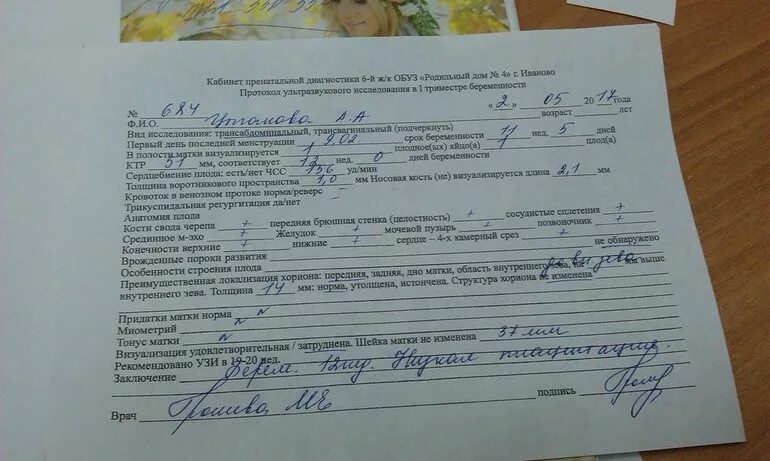 Кабинет пренатальной диагностики 6-й ж/к ОБУЗ «Родильный дом № 4» г. Иваново
Протокол ультразвукового исследования в I триместре беременности
№ 684 « 2 » 05 2017 года
Ф.И.О. А.А возраст лет
Вид исследования: трансабдоминальный, трансвагинальный (подчеркнуть)
Первый день последней менструации 9.02 срок беременности 11 нед. 5 дней
В полости матки визуализируется 1 плодное(ых) яйцо(а) 1 плод(а)
КТР 51 мм, соответствует 12 нед. 0 дней беременности
Сердцебиение плода: есть/нет ЧСС 156 уд/мин
Толщина воротникового пространства 1,0 мм Носовая кость (не) визуализируется длина 2,1 мм
Кровоток в венозном протоке норма/реверс –
Трикуспидальная регургитация да/нет
Анатомия плода
Кости свода черепа + передняя брюшная стенка (целостность) + сосудистые сплетения +
Срединное м-эхо + Желудок + мочевой пузырь + позвоночник +
Конечности верхние + нижние + сердце – 4-х камерный срез +
Врожденные пороки развития не обнаружено
Особенности строения плода
Преимущественная локализация хориона: передняя, задняя, дно матки, область внутреннего зева, на до вн. зева мм выше
внутреннего зева. Толщина 14 мм: норма, утолщена, истончена. Структура хориона не изменена
Придатки матки норма
Миометрий
Тонус матки
Визуализация удовлетворительная / затруднена. Шейка матки не изменена 37 мм
Рекомендовано УЗИ в 19-20 нед.
Заключение Берем. 12 нед. Низкая плацентация.
Врач МЕ подпись